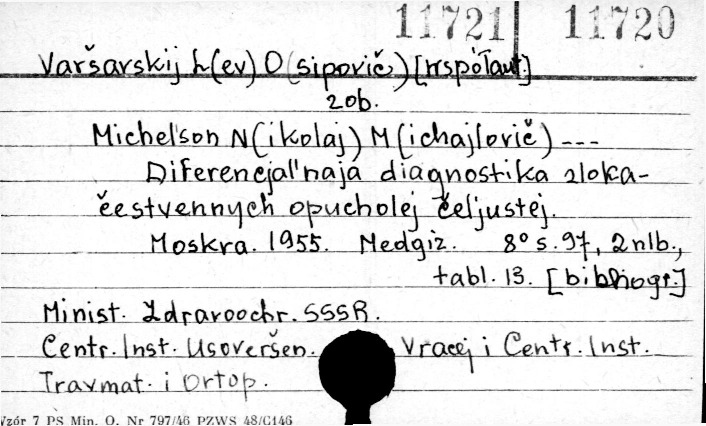 11721 11720
Varšavskij L(ev) O(sipovič) [współaut.]
zob.
Michel'son N(ikolaj) M(ichajlovič) ---
Diferencjal'naja diagnostika zloka-
čestvennych opucholej čeljustej.
Moskva. 1955. Medgiz. 8° s. 97, 2 nlb.,
tabl. 13. [bibliogr.]
Minist. Zdravoochr. SSSR.
Centr. Inst. Usoveršen. Vračej i Centr. Inst.
Travmat. i Ortop.
Wzór 7 PS Min. O. Nr 797/46 PZWS 48/C146